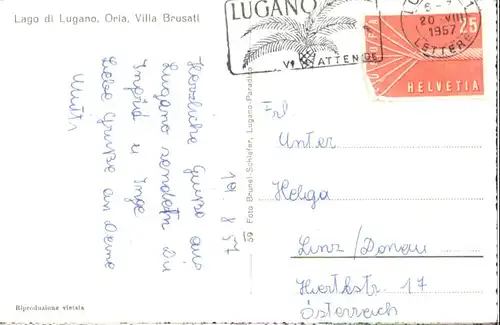 Lago di Lugano, Oria, Villa Brusati
LUGANO
VI ATTENDE
20 VIII
1957
LETTERE
EUROPA
25
HELVETIA
19. 8. 57
Herzliche Grüße aus
Lugano senden Dir
Ingrid u Inge
Liebe Grüße an Deine
Mutti
59 Foto Brunel-Schlafer, Lugano-Paradiso
Frl
Unter
Helga
Linz/Donau
17
Österreich
Riproduzione vietata